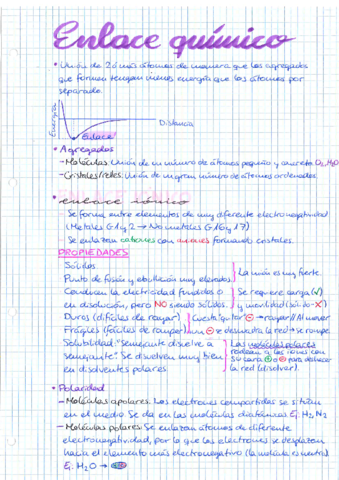 Enlace químico
• Unión de 2 ó más átomos de manera que los agregados
que forman tengan menos energía que los átomos por
separado.
Energía
Distancia
Enlace
• Agregados
- Moléculas: Unión de un número de átomos pequeño y concreto O₂, H₂O
- Cristales/redes: Unión de un gran número de átomos ordenados.
ENLACE IÓNICO
• enlace iónico
- Se forma entre elementos de muy diferente electronegatividad
(Metales G1 y 2 → No metales G16 y 17)
- Se enlazan cationes con aniones formando cristales.
PROPIEDADES
Sólidos.
Punto de fusión y ebullición muy elevados. } La unión es muy fuerte.
Conducen la electricidad fundidos o
en disolución, pero NO siendo sólidos. } Se requiere carga (✓)
y movilidad (sólido-X)
Duros (difíciles de rayar) } Cuesta "quitar" ⊖ → rayar // Al mover
Frágiles (fáciles de romper) un ⊖ se desmonta la red → se rompe.
Solubilidad: "Semejante disuelve a
semejante". Se disuelven muy bien
en disolventes polares
Las moléculas polares
rodean a los iones con
su cara ⊕ o ⊖ para deshacer
la red (disolver).
• Polaridad
- Moléculas apolares: Los electrones compartidos se sitúan
en el medio Se da en las moléculas diatómicas Ej: H₂, N₂
- Moléculas polares: Se enlazan átomos de diferente
electronegatividad, por lo que los electrones se desplazan
hacia el elemento más electronegativo (la molécula es neutra)
Ej: H₂O →